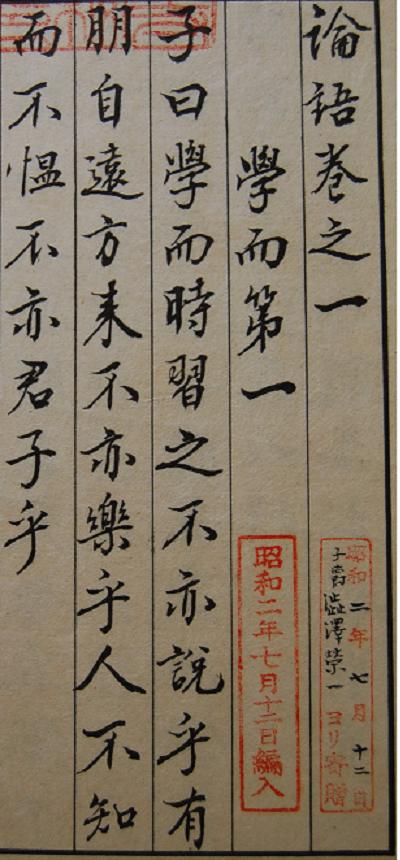 論語卷之一
昭和二年七月十二日
子爵澁澤榮一ヨリ寄贈
學而第一
昭和二年七月十二日編入
子曰學而時習之不亦說乎有
朋自遠方来不亦樂乎人不知
而不愠不亦君子乎